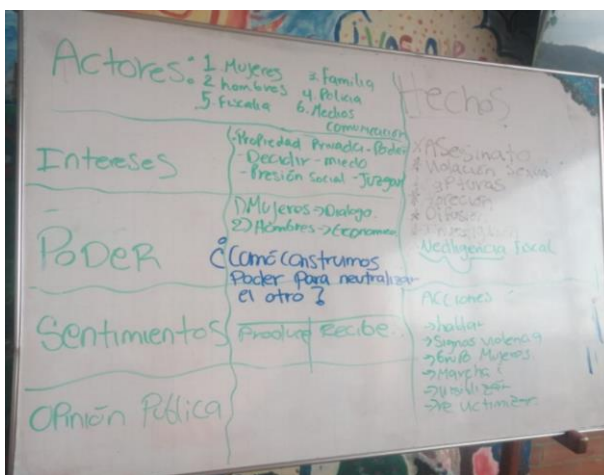 Actores: 1. Mujeres 3. Familia
2 hombres 4. Policia
5. Fiscalia 6. Medios
comunicación
Intereses
-Propiedad Privada-Poder
-Decidir-miedo
-Presión Social-Juzgar
PODER
1) Mujeres→Dialogo.
2) Hombres→Economia
¿Comó construmos
Poder Para neutralizar
el otro?
Sentimientos
Produce Recibe
Opinión Pública
Hechos
*Asesinato
*Violación Sexual
*Capturas
*Difusión
Negligencia Fiscal
Acciones
→hallar
→Signos violencia
→Mujeres
→Marcha
→re victimizar